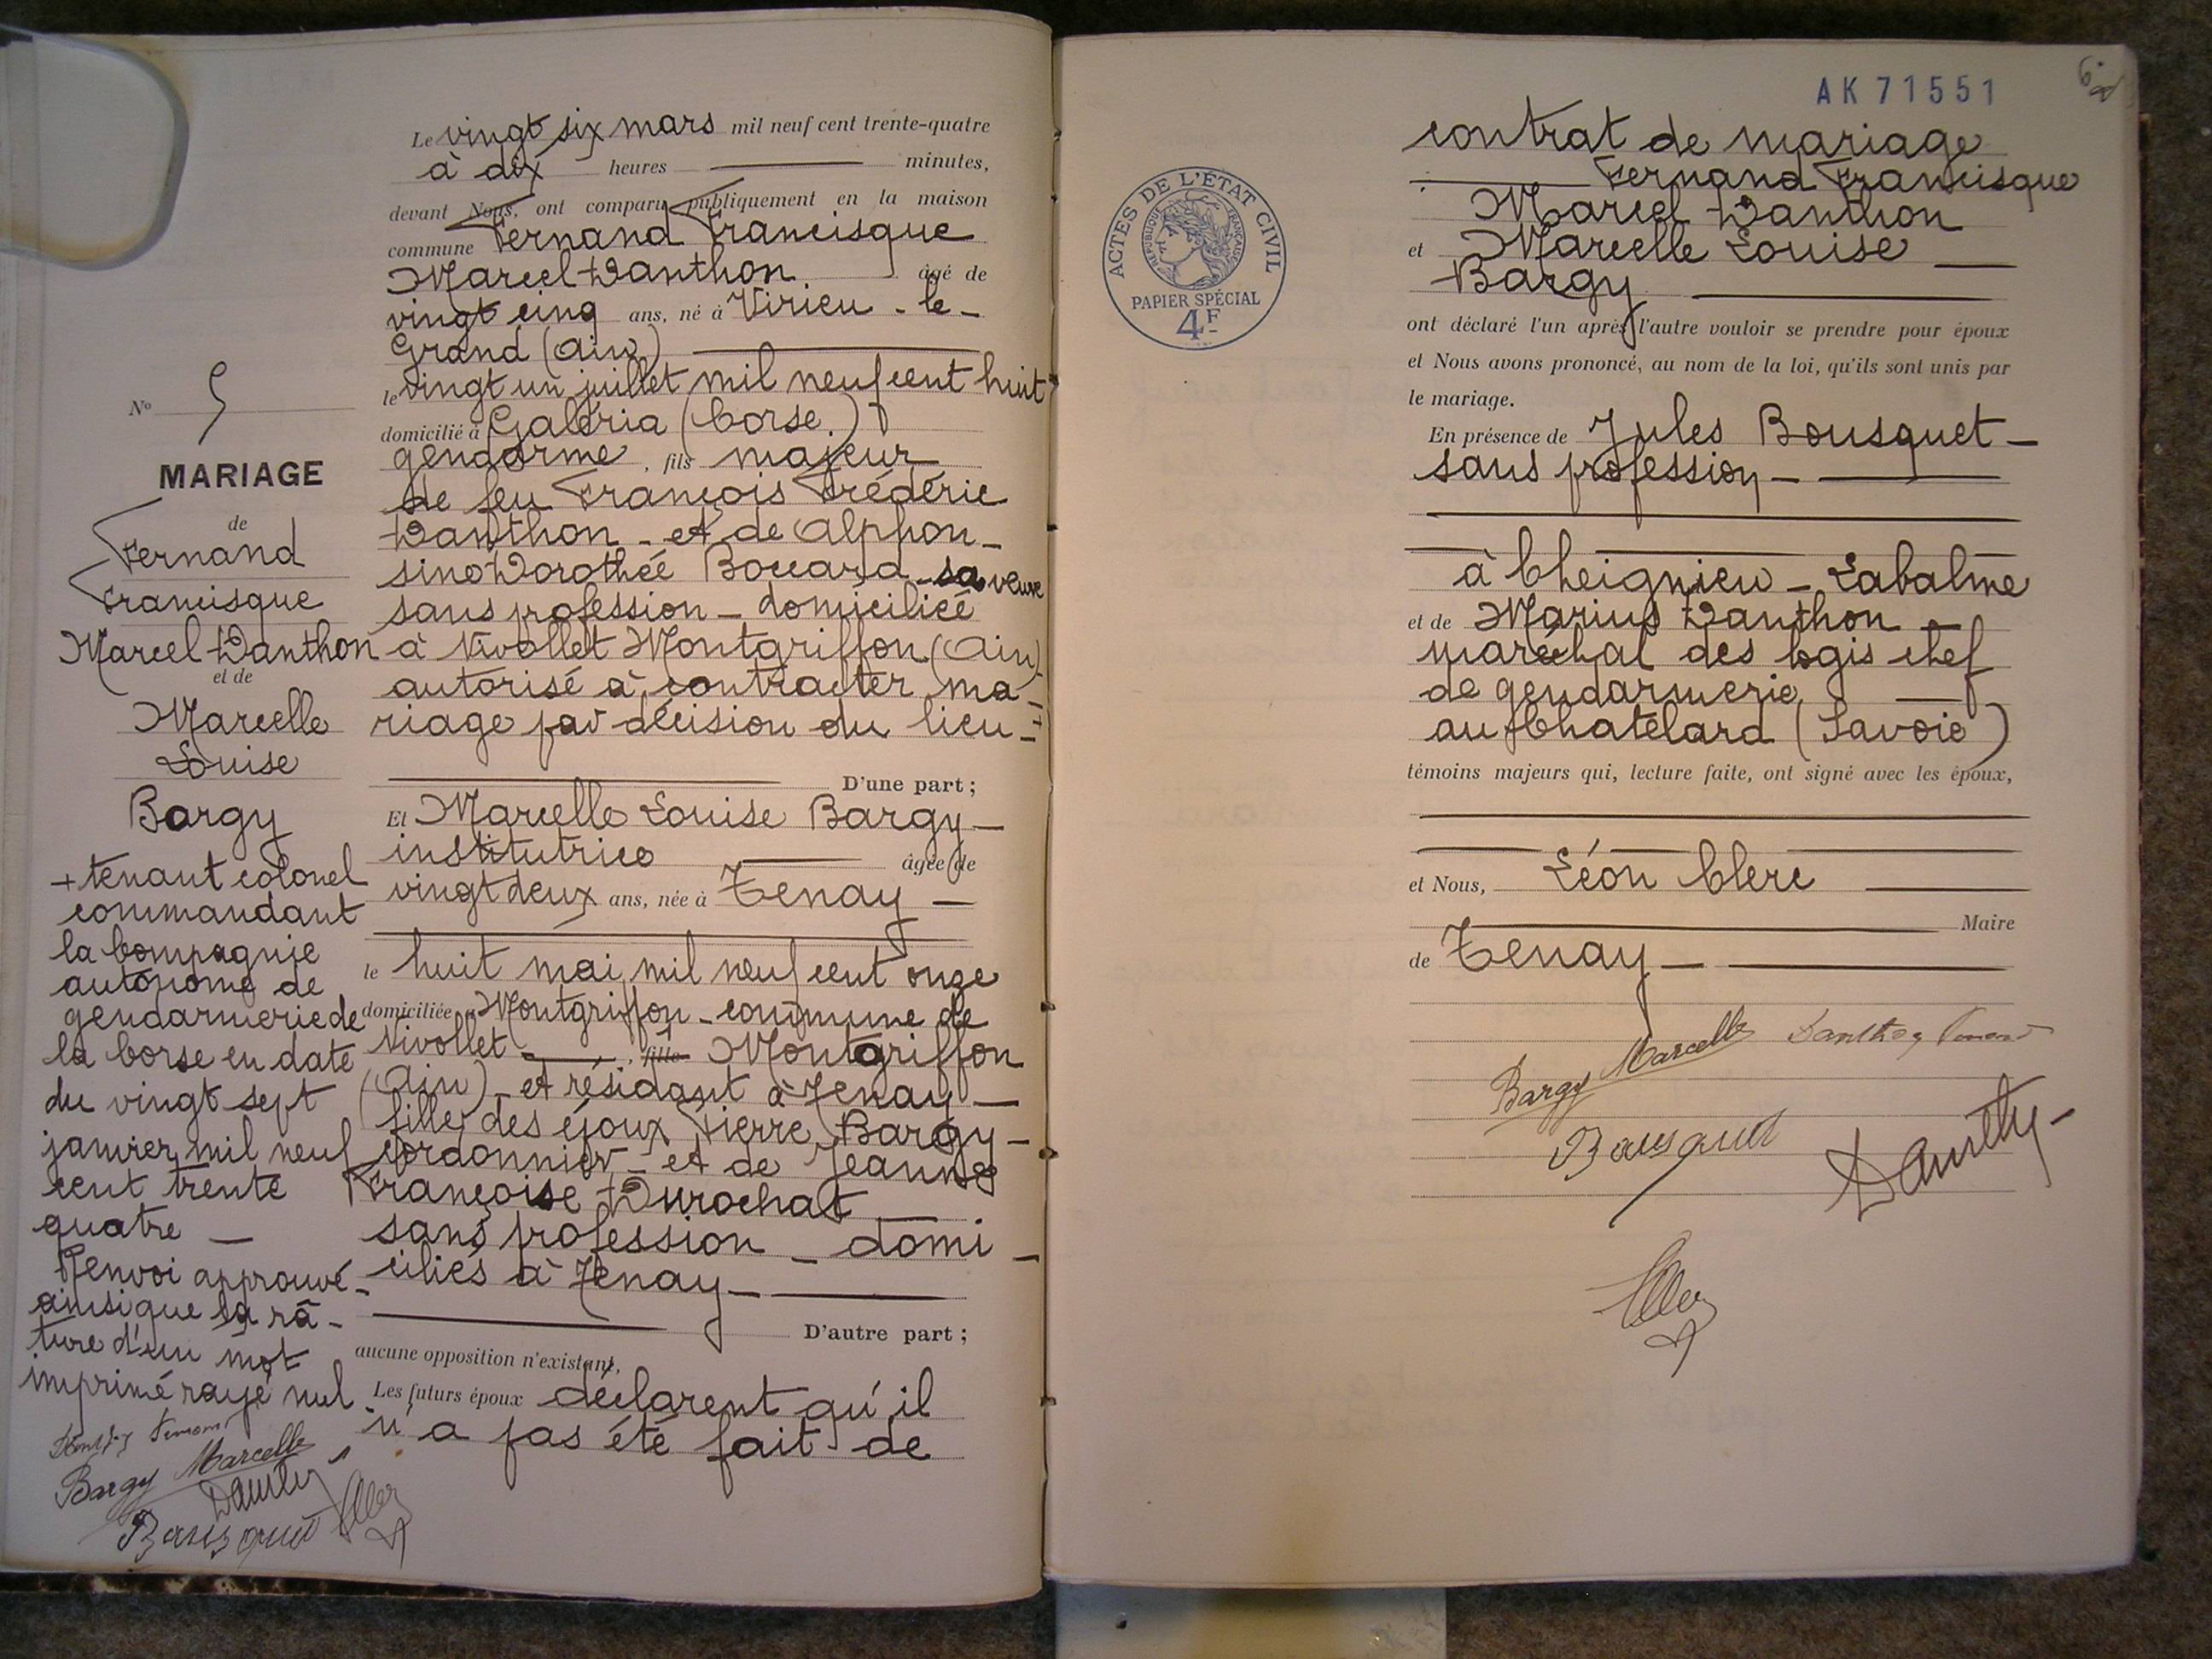 Le vingt six mars mil neuf cent trente-quatre
à dix heures minutes,
devant Nous, ont comparu publiquement en la maison
commune Fernand Francisque
Marcel Danthon âgé de
vingt cinq ans, né à Virieu-le-
Grand (Ain)
le vingt un juillet mil neuf cent huit
domicilié à Galéria (Corse)
gendarme, fils majeur
de feu François Frédéric
Danthon - et de Alphon-
sine Dorothée Bocard sa veuve
sans profession - domiciliée
à Nivollet Montgriffon (Ain)
autorisé à contracter ma-
riage par décision du lieu- +
D'une part ;
Et Marcelle Louise Bargy -
institutrice âgée de
vingt deux ans, née à Tenay -
le huit mai mil neuf cent onze
domiciliée à Montgriffon - commune de
Nivollet , fille Montgriffon
(Ain) - et résidant à Tenay -
fille des époux Pierre Bargy -
cordonnier - et de Jeanne
Françoise Durochat
sans profession - domi-
ciliés à Tenay -
D'autre part ;
aucune opposition n'existant,
Les futurs époux déclarent qu'il
n'a pas été fait de
N° 5
MARIAGE
de
Fernand
Francisque
Marcel Danthon
et de
Marcelle
Louise
Bargy
+ tenant colonel
commandant
la Compagnie
autonome de
gendarmerie de
la Corse en date
du vingt sept
janvier mil neuf
cent trente
quatre -
Renvoi approuvé
ainsi que la râ-
ture d'un mot
imprimé rayé nul
Bargy Marcelle
Bousquet
AK 71551
ACTES DE L'ÉTAT CIVIL
RÉPUBLIQUE FRANÇAISE
PAPIER SPÉCIAL
4F
contrat de mariage
Fernand Francisque
Marcel Danthon
et Marcelle Louise
Bargy
ont déclaré l'un après l'autre vouloir se prendre pour époux
et Nous avons prononcé, au nom de la loi, qu'ils sont unis par
le mariage.
En présence de Jules Bousquet -
sans profession -
à Cheignieu - Labalme
et de Marius Danthon -
maréchal des logis chef
de gendarmerie
au Chatelard (Savoie)
témoins majeurs qui, lecture faite, ont signé avec les époux,
et Nous, Léon Clerc
Maire
de Tenay -
Bargy Marcelle
Bousquet